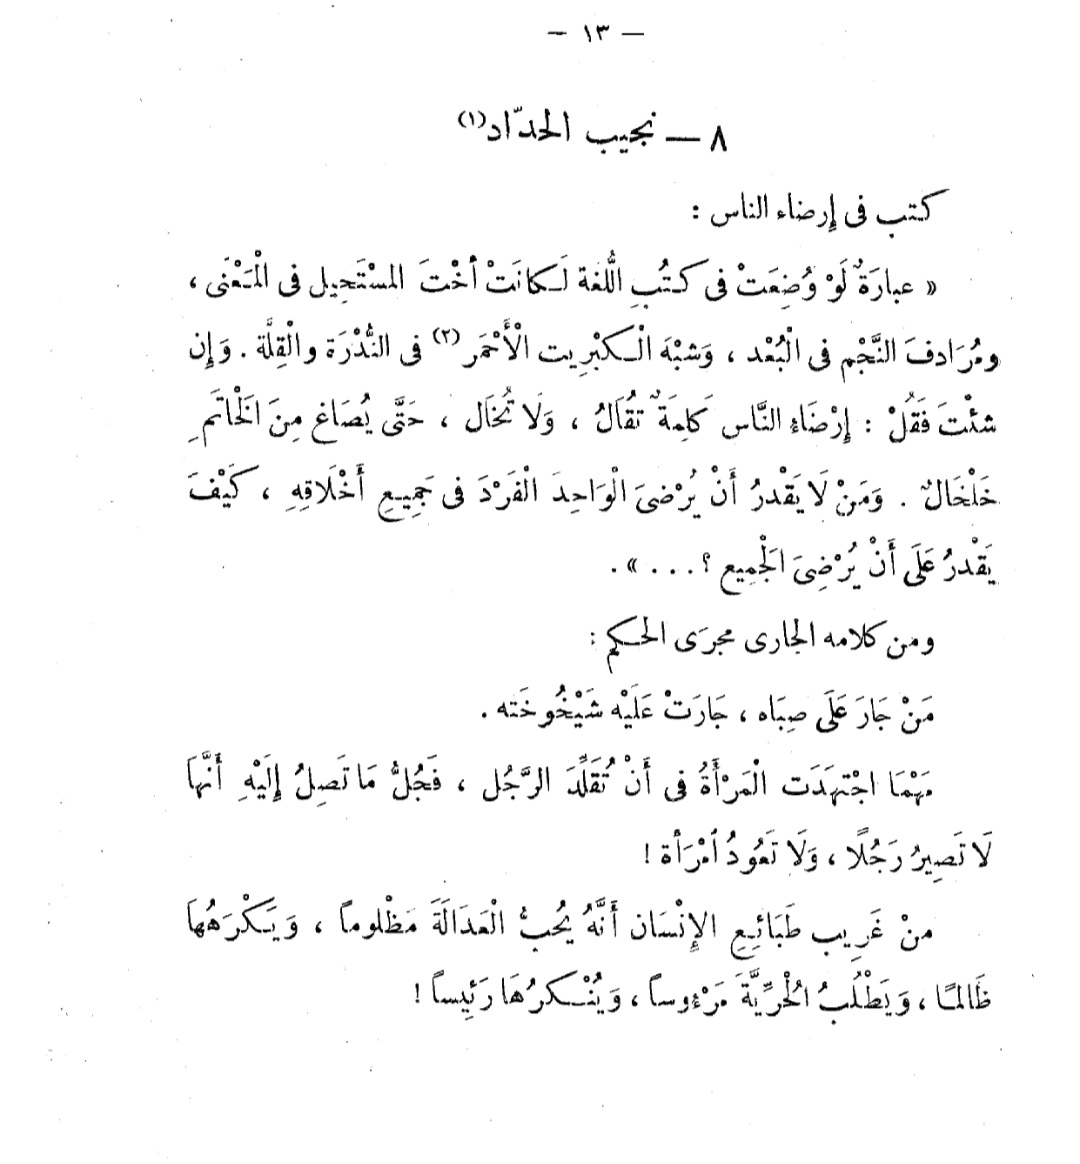 — ١٣ —
٨ — نجيب الحدّاد (١)
كتب فى إرضاء الناس :
« عبارَةٌ لَوْ وُضِعَتْ فى كتُبِ اللُّغة لَكانَتْ أخْتَ المسْتَحِيل فى الْمَعْنَى ،
ومُرَادفَ النَّجْم فى الْبُعْد ، وَشبْهَ الْكبْرِيت الْأَحْمَر (٢) فى النُّدْرَة والْقِلَّة . وَإن
شئْتَ فَقُلْ : إرْضَاءُ النَّاس كَلِمَةٌ تُقَالُ ، وَلَا تُخَال ، حَتَّى يُصَاغ مِنَ الْخَاتَمِ
خَلْخَالٌ . وَمَنْ لَا يَقْدرُ أَنْ يُرْضىَ الْوَاحِدَ الْفَرْدَ فى جَمِيعِ أَخْلَاقِهِ ، كَيْفَ
يَقْدرُ عَلَى أَنْ يُرْضِىَ الْجَمِيع ؟ . . . » .
ومن كلامه الجارى مجرَى الحكم :
مَنْ جَارَ عَلَى صِبَاه ، جَارَتْ عَلَيْه شَيْخُوخَته .
مَهْمَا اجْتهَدَت الْمَرْأَةُ فى أَنْ تُقَلِّدَ الرَّجُل ، فَجُلُّ مَا تَصِلُ إلَيْهِ أَنَّهَا
لَا تَصِيرُ رَجُلًا ، وَلَا تَعُودُ اَمْرَأة !
منْ غَرِيب طَبَائِعِ الإِنْسَان أَنَّهُ يُحبُّ الْعَدَالَةَ مَظْلوماً ، وَيَكْرَهُهَا
ظَالمًا ، وَيَطْلُبُ الْحُرِّيَّةَ مَرْءوساً ، وَيُنْكرُهَا رَئِيساً !